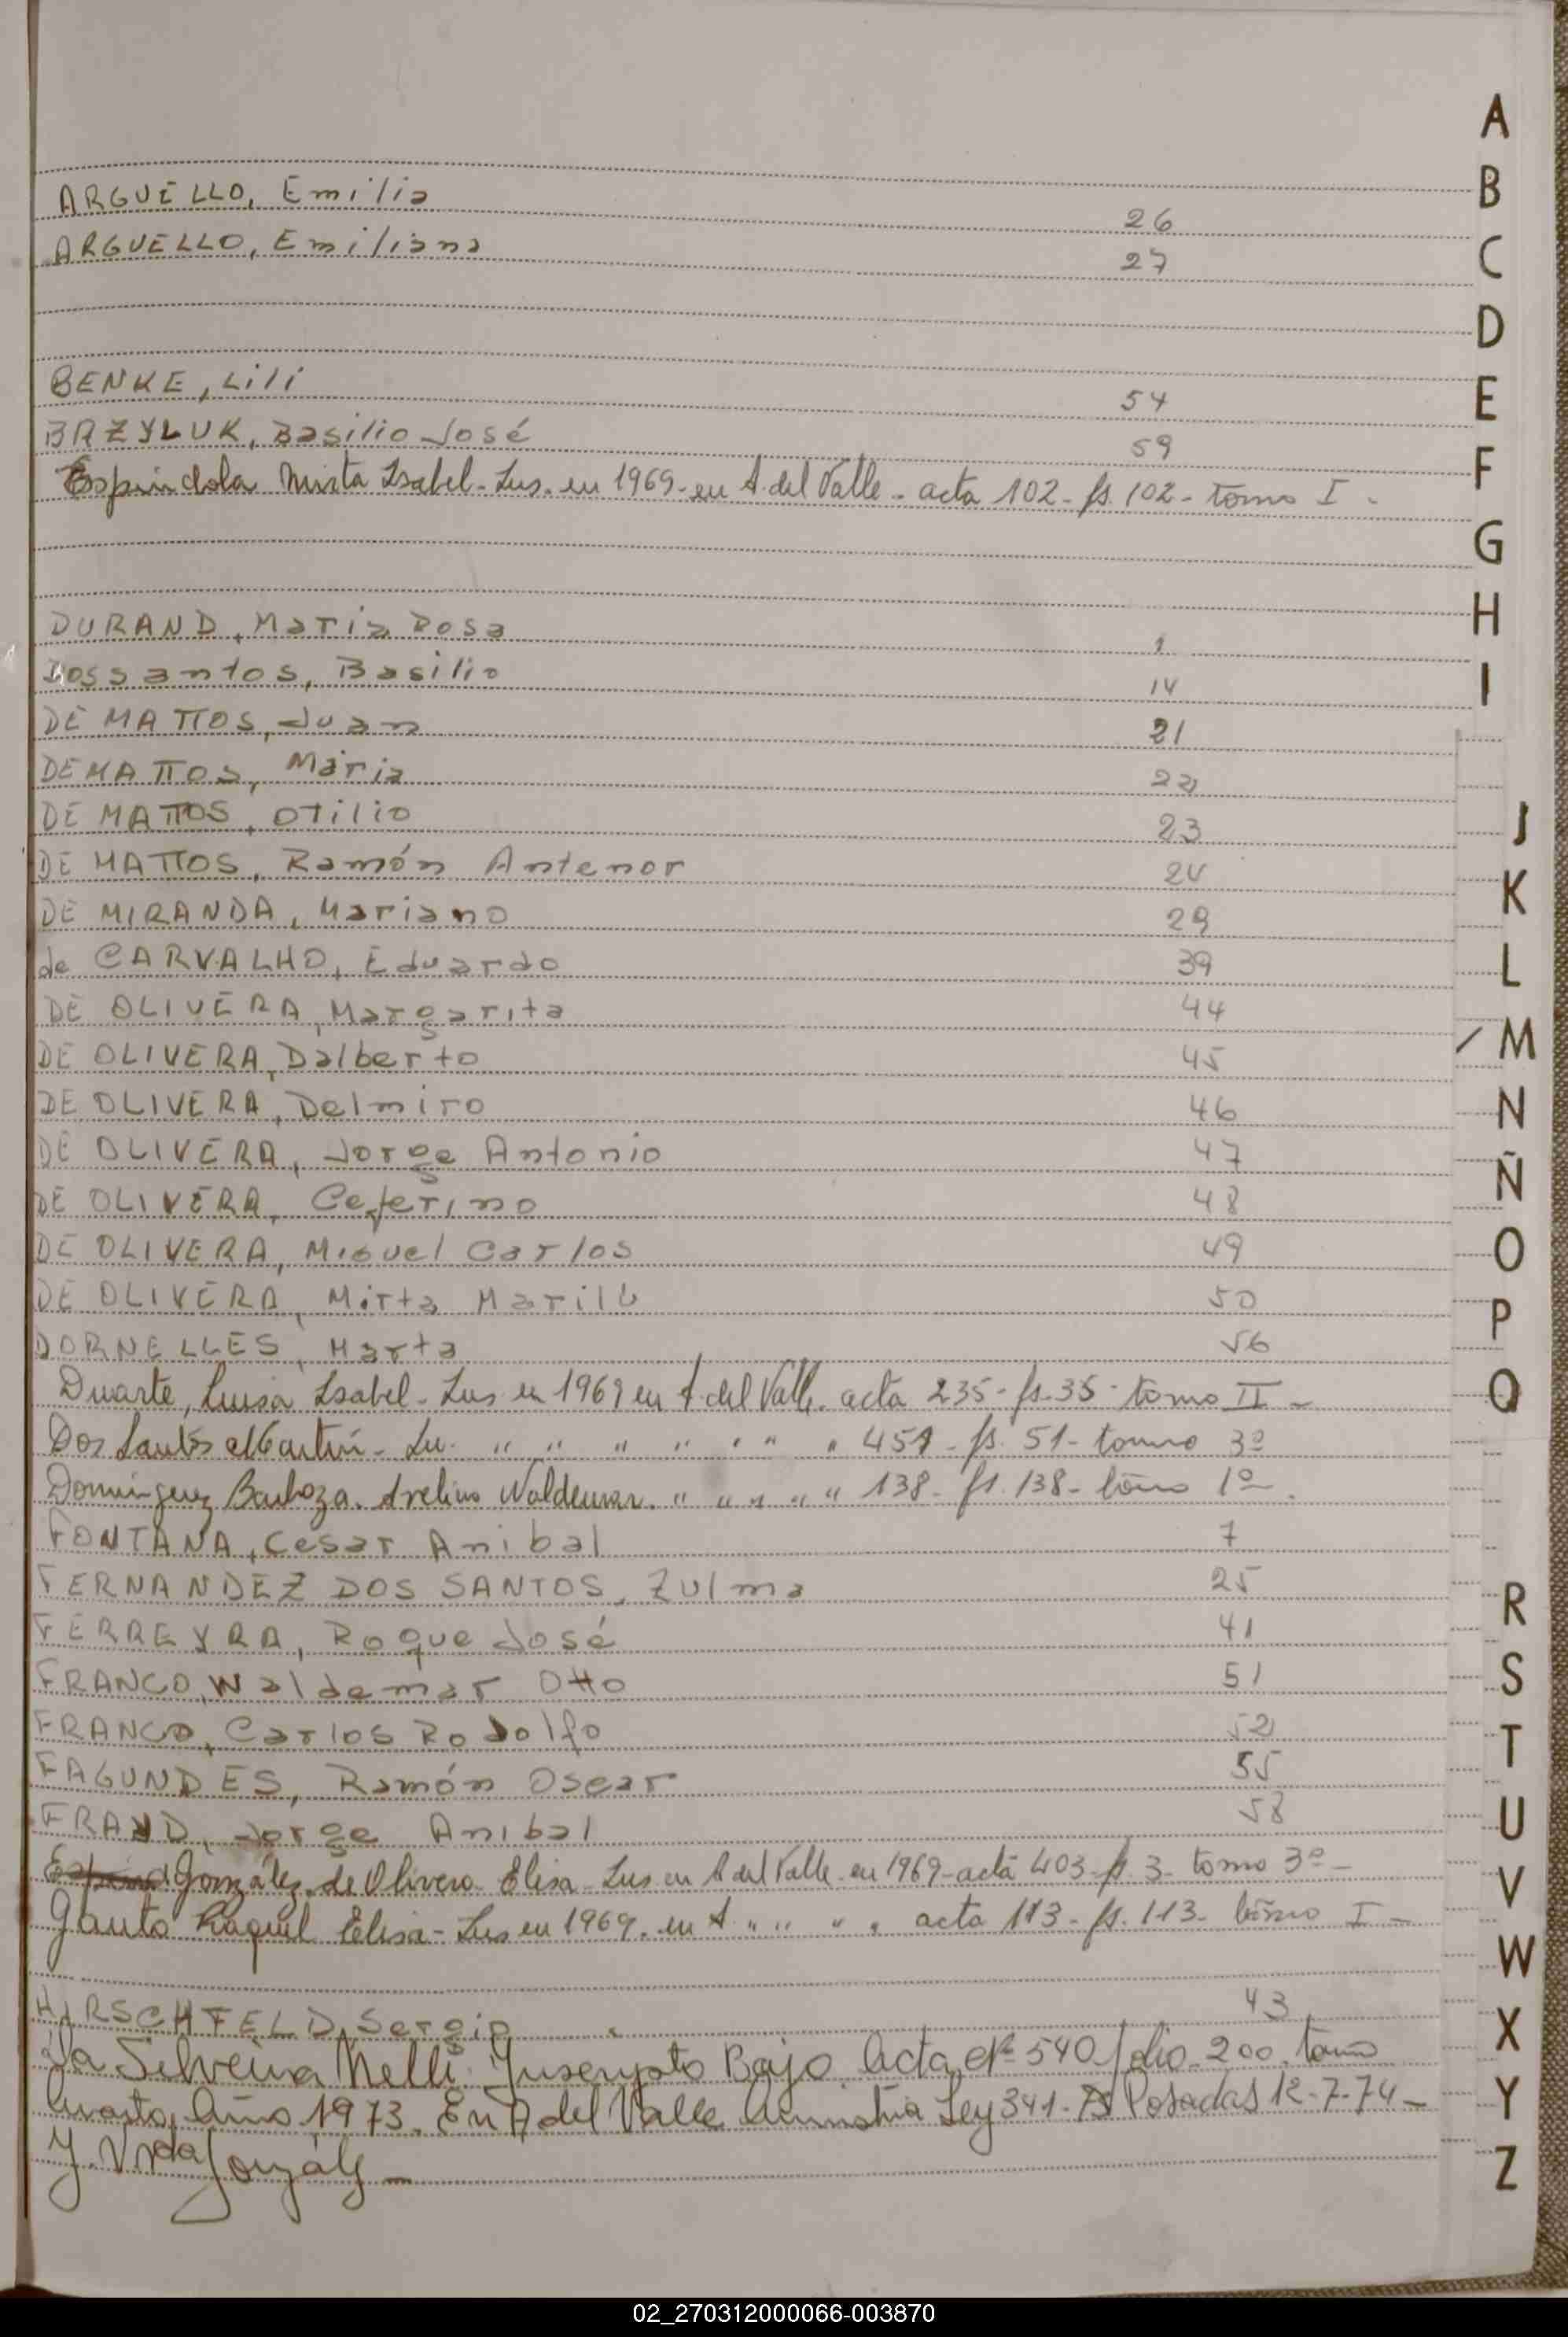 ARGUELLO, Emilia 26
ARGUELLO, Emiliana 27
BENKE, Lili 54
BAZYLUK, Basilio José 59
Espindola Mirta Isabel - Ins. en 1969 - en A. del Valle - acta 102 - fs. 102 - tomo I -
DURAND, Maria Rosa 1
Dossantos, Basilio 14
DE MATTOS, Juan 21
DE MATTOS, Maria 22
DE MATTOS, Otilio 23
DE MATTOS, Ramón Antenor 24
DE MIRANDA, Mariano 29
de CARVALHO, Eduardo 39
DE OLIVERA, Margarita 44
DE OLIVERA, Dalberto 45
DE OLIVERA, Delmiro 46
DE OLIVERA, Jorge Antonio 47
DE OLIVERA, Ceferino 48
DE OLIVERA, Miguel Carlos 49
DE OLIVERA, Mirta Marilu 50
DORNELLES, Marta 56
Duarte, Luisa Isabel - Ins en 1969 en A. del Valle - acta 235 - fs. 35 - tomo II -
Dos Santos Martin - In. " " " " " " " 451 - fs. 51 - tomo 3º
Dominguez Barboza. Avelino Waldemar. " " " " " 138 - fs. 138 - tomo 1º.
FONTANA, Cesar Anibal 7
FERNANDEZ DOS SANTOS, Zulma 25
FERREYRA, Roque José 41
FRANCO, Waldemar Otto 51
FRANCO, Carlos Rodolfo 52
FAGUNDES, Ramón Oscar 55
FRAND, Jorge Anibal 58
González de Olivera - Elisa - Ins en A del Valle - en 1969 - acta 403 - fs. 3 - tomo 3º -
Gauto Raquel Elisa - Ins en 1969. en A. " " " " acta 113 - fs. 113 - tomo I -
HIRSCHFELD, Sergio 43
Da Silveira Nelli. Inscripto Bajo Acta Nº 540 folio 200 tomo
Cuarto, Año 1973. En A del Valle Amnistia Ley 341. Posadas 12-7-74 -
González -
A
B
C
D
E
F
G
H
I
J
K
L
M
N
Ñ
O
P
Q
R
S
T
U
V
W
X
Y
Z
02_270312000066-003870